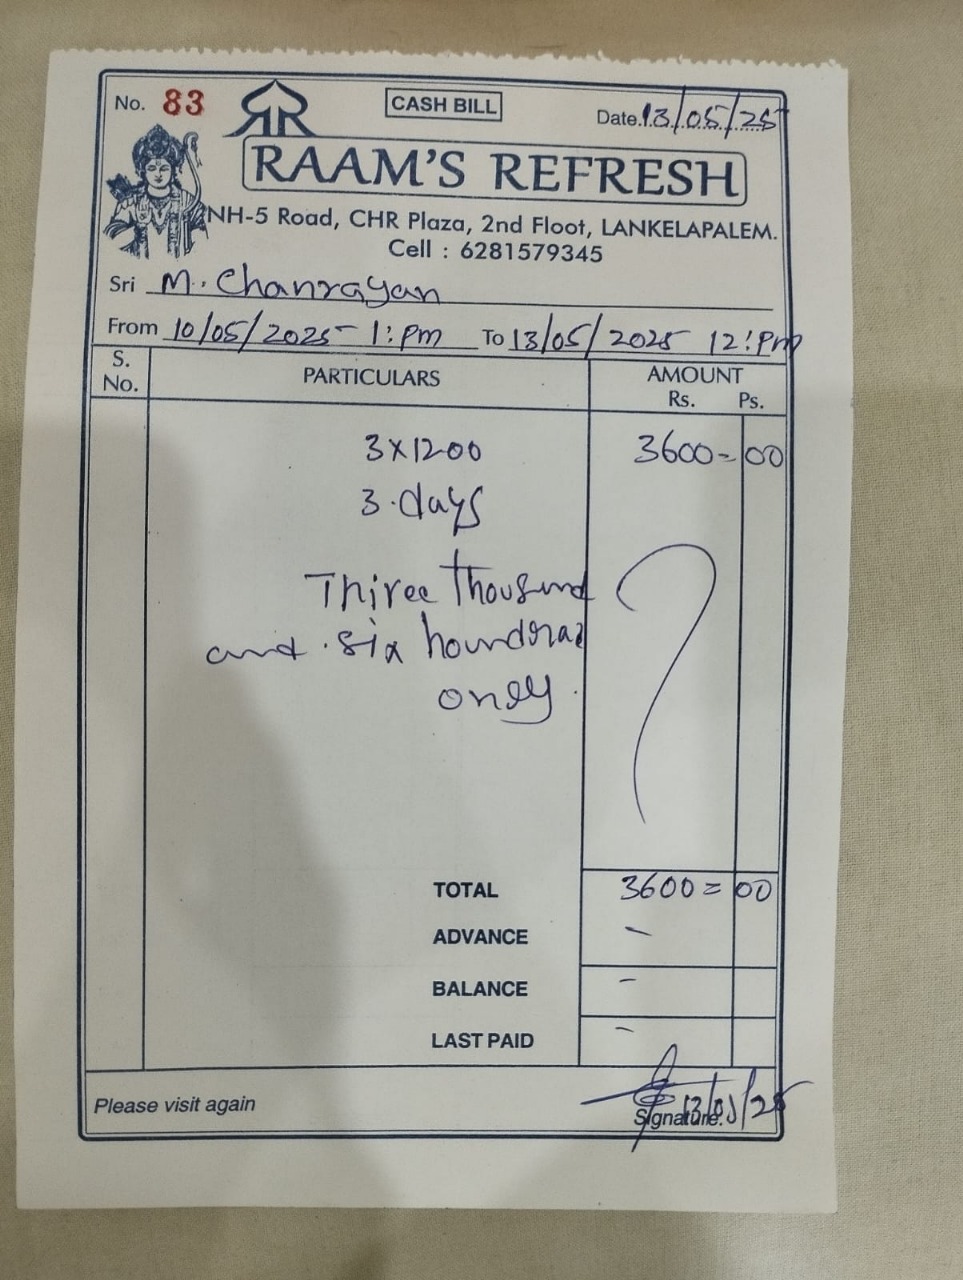 No. 83
CASH BILL
Date. 13/05/25
RAAM'S REFRESH
NH-5 Road, CHR Plaza, 2nd Floot, LANKELAPALEM.
Cell : 6281579345
Sri M. Chanrayan
From 10/05/2025 - 1: pm To 13/05/2025 12: pm
S. No. PARTICULARS AMOUNT
Rs. Ps.
3x1200 3600=00
3. days
Thiree thousand
and six houndred
only.
TOTAL 3600=00
ADVANCE -
BALANCE -
LAST PAID -
Please visit again
13/05/25
Signature.